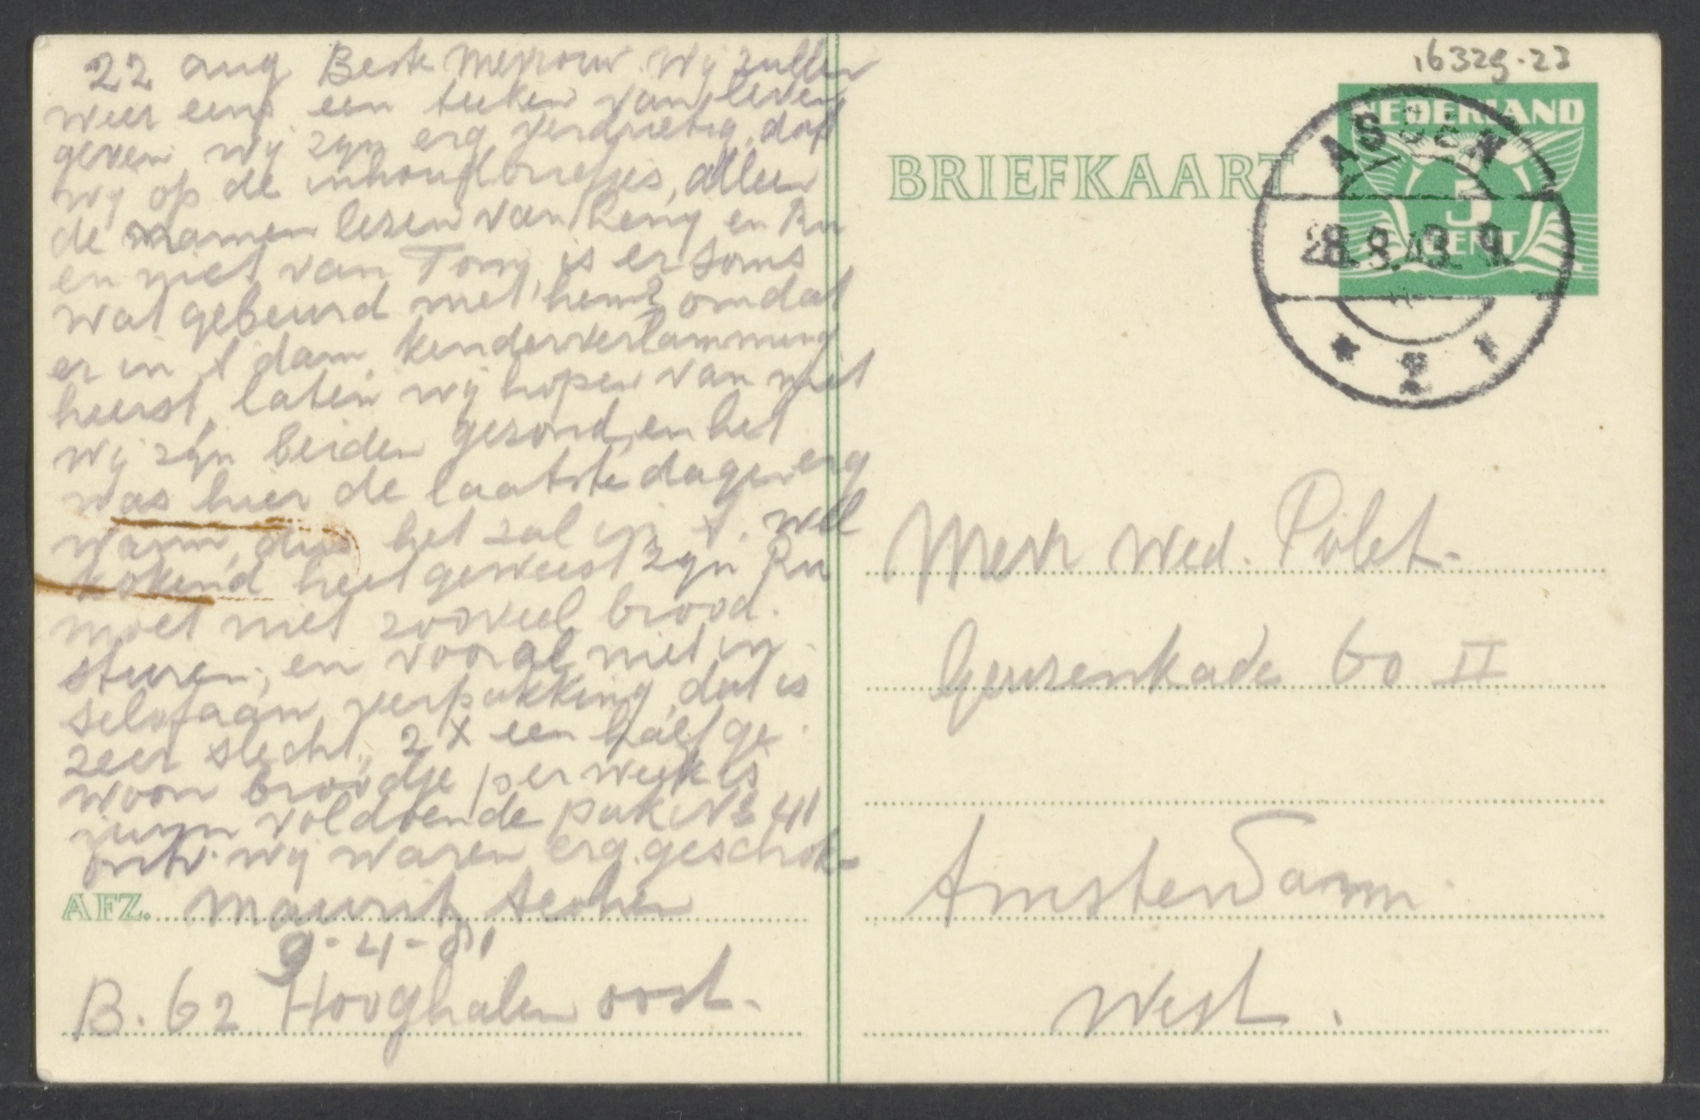 22 aug Beste Mevrouw. Wij zullen
weer eens een teeken van leven
geven, wij zijn erg verdrietig, dat
wij op de inhoud briefjes, alleen
de namen lezen van Reny en Ru
en niet van Tom, is er soms
wat gebeurd met hem? omdat
er in A'dam, kinderverlamming
heerst, laten wij hopen van niet
wij zijn beiden gezond, en het
was hier de laatste dagen erg
warm, dus het zal in A. wel
kokend heet geweest zijn Ru
moet niet zooveel brood.
sturen, en vooral niet in
selofaan verpakking, dat is
zeer slecht, 2 X een half ge
woon broodje per week is
ruim voldoende pak No 41
ontv. wij waren erg geschrok-
AFZ. Maurits
9-4-81
B. 62 Hooghalen oost.
16329.23
NEDERLAND
5
CENT
ASSEN
28.8.43. 9.
* 2
BRIEFKAART
Mevr Wed. Polet.
Geuzenkade 60 II
Amsterdam
West.